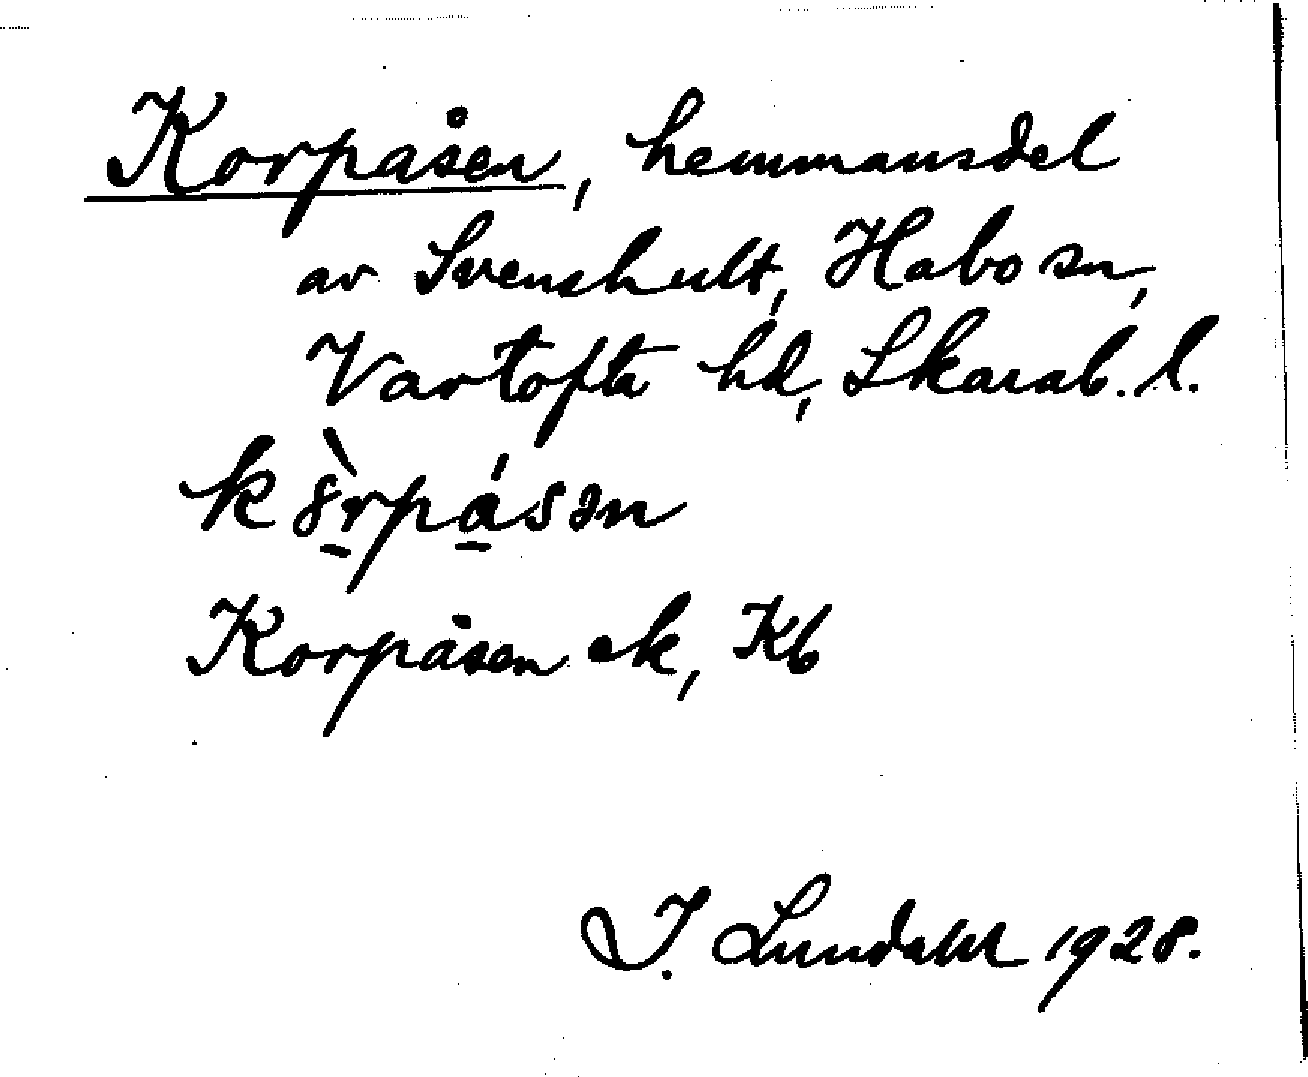 Korpåsen, hemmansdel
av Svenshult, Habo sn,
Vartofta hd, Skarab. l.
Korpåsen ek, Kb
I. Lundahl 1928.